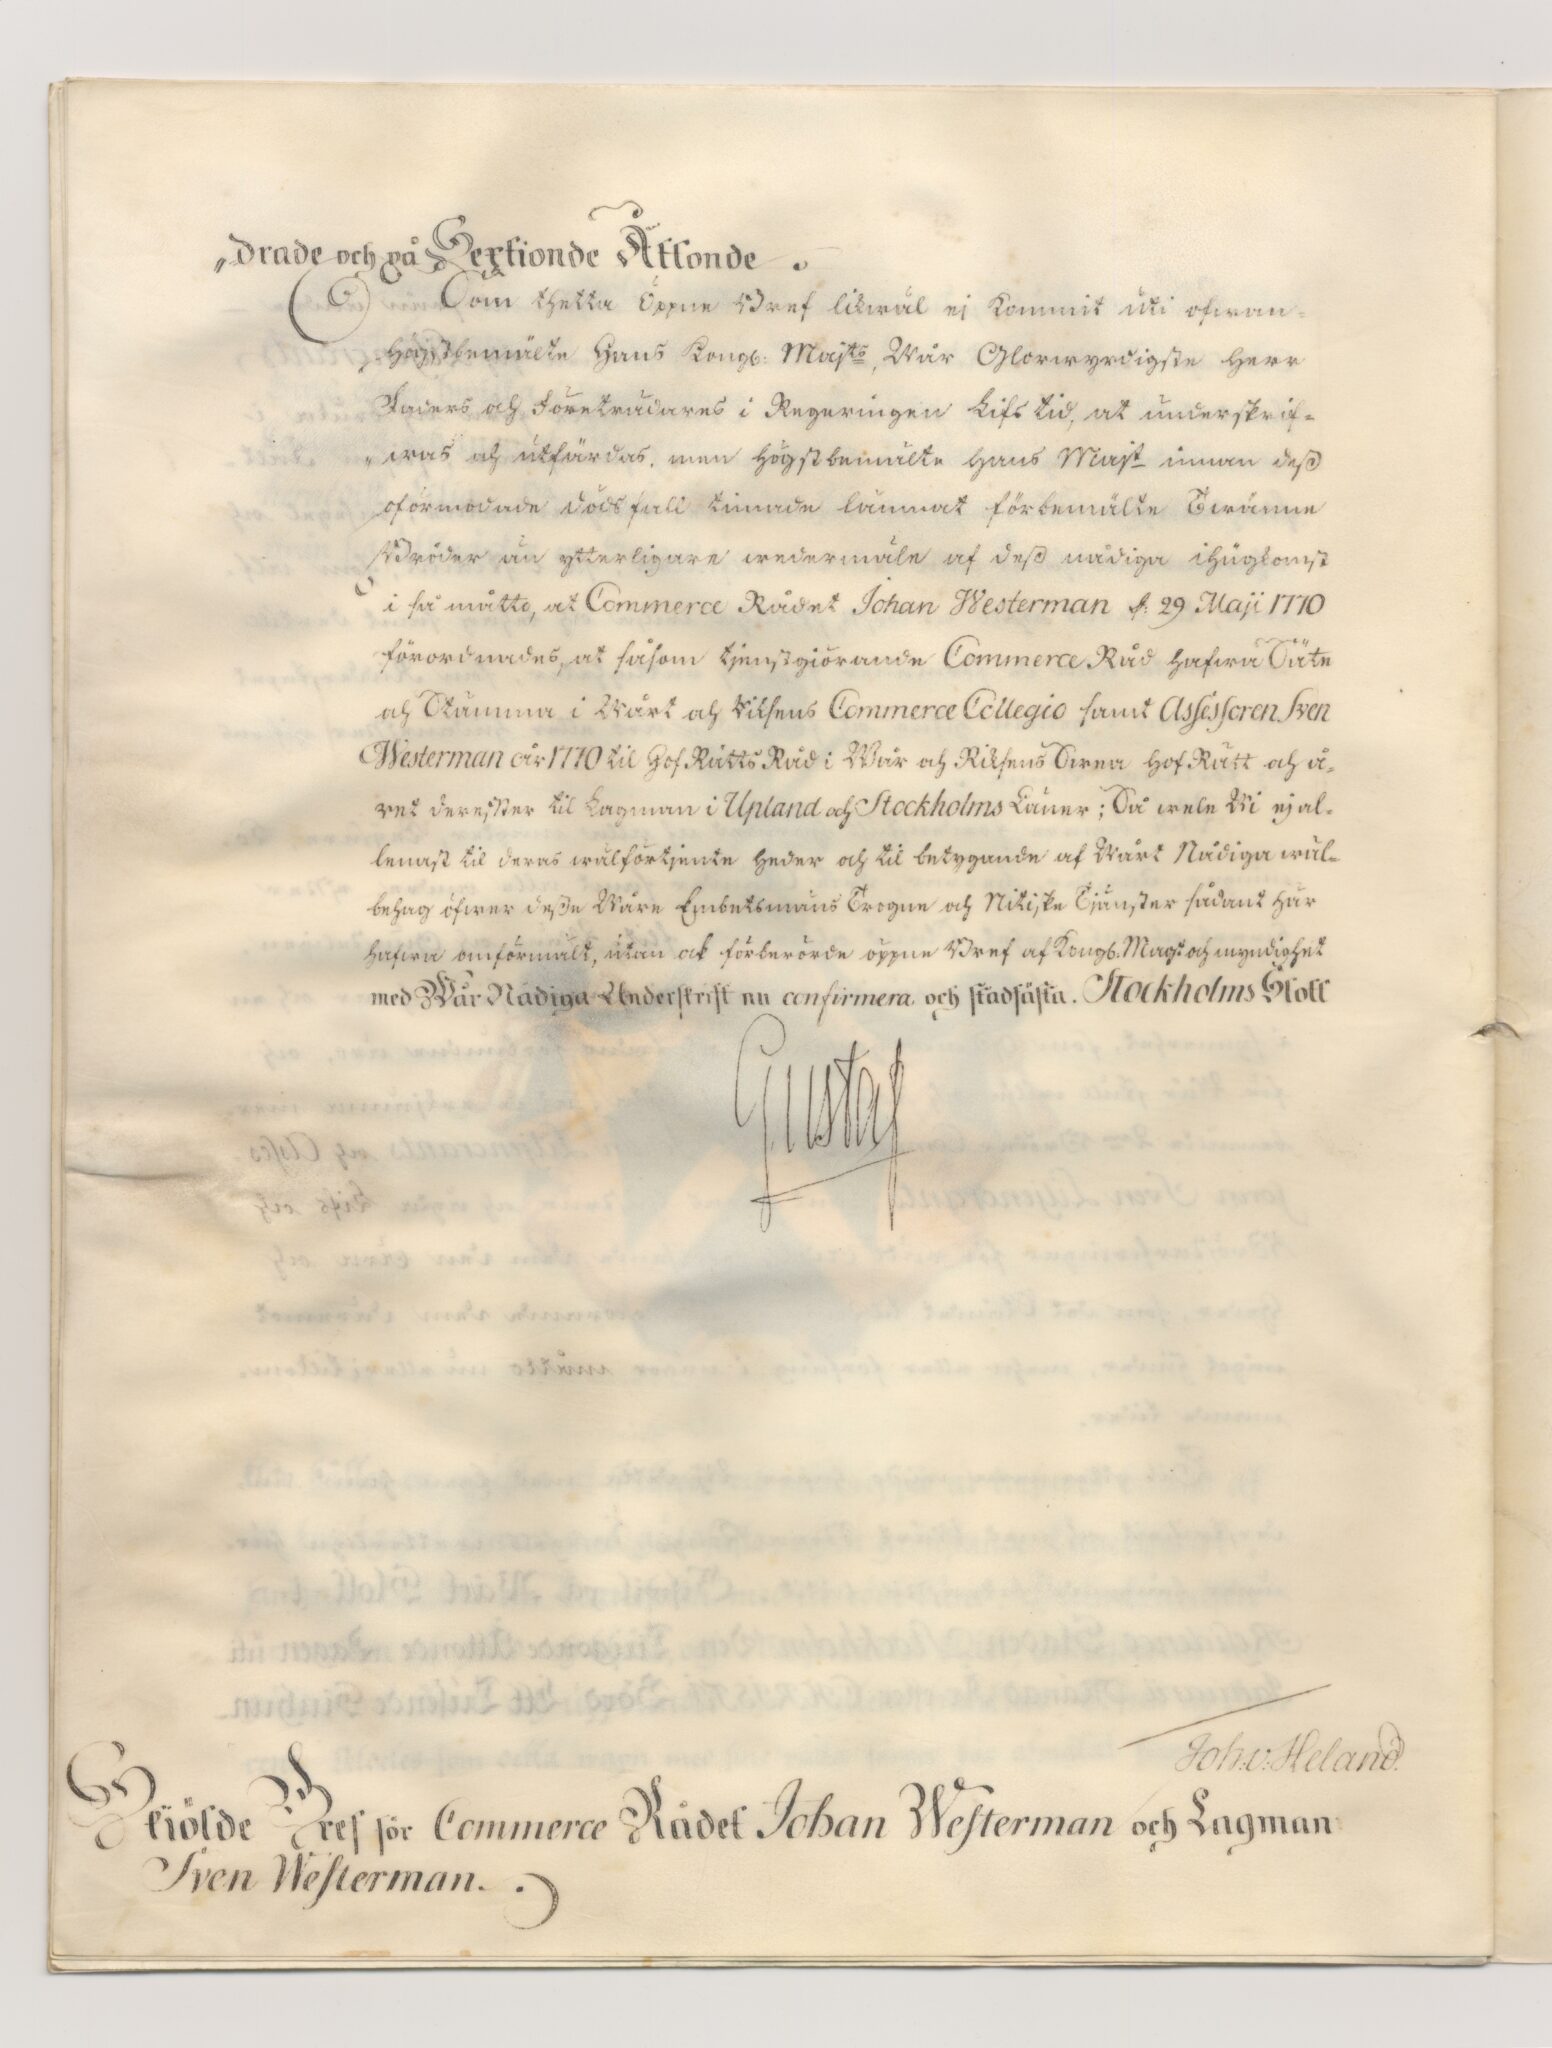 „drade och på Sextionde Åttonde.
Som thetta Öppne Bref likwäl ej kommit uti ofwan-
högstbemälte Hans Kongl: Majts, Wår Glorwyrdigste Herr
Faders och Företrädares i Regeringen Lifstid, at underskrif-
„was och utfärdas, men Högstbemälte Hans Majt innan deß
oförmodade dödsfall timade lämnat förbemälte Twänne
Bröder än ytterligare wedermäle af deß nådiga ihugkomst
i så måtto, at Commerce Rådet Johan Westerman d. 29 Maji 1770
förordnades, at såsom tjenstgiörande Commerce Råd hafwa Säte
och Stämma i Wårt och Riksens Commerce Collegio samt Assessoren Sven
Westerman år 1770 til Hof Rätts Råd i Wår och Riksens Swea Hof Rätt och å-
ret derefter til Lagman i Upland och Stockholms Läner; Så wele Wi ej al-
lenast til deras wälförtjente heder och til betygande af Wårt Nådiga wäl-
behag öfwer deße Wåre Embetsmäns Trogne och Nitiske Tjänster sådant här
hafwa omförmält, utan ock förberörde öppne Bref af Kongl. Magt och myndighet
med Wår Nådiga Underskrift nu confirmera och stadfästa. Stockholms Slott
Gustaf
Joh. v: Heland.
Skiölde Bref för Commerce Rådet Johan Westerman och Lagman
Sven Westerman.